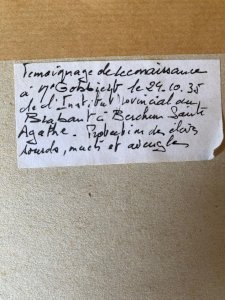 Temoignage de reconnaissance
à Mr Gobbiert le 29.10.35
de l'Institut Provincial du
Brabant à Berchem Sainte
Agathe. Production des élèves
sourds, muets et aveugles